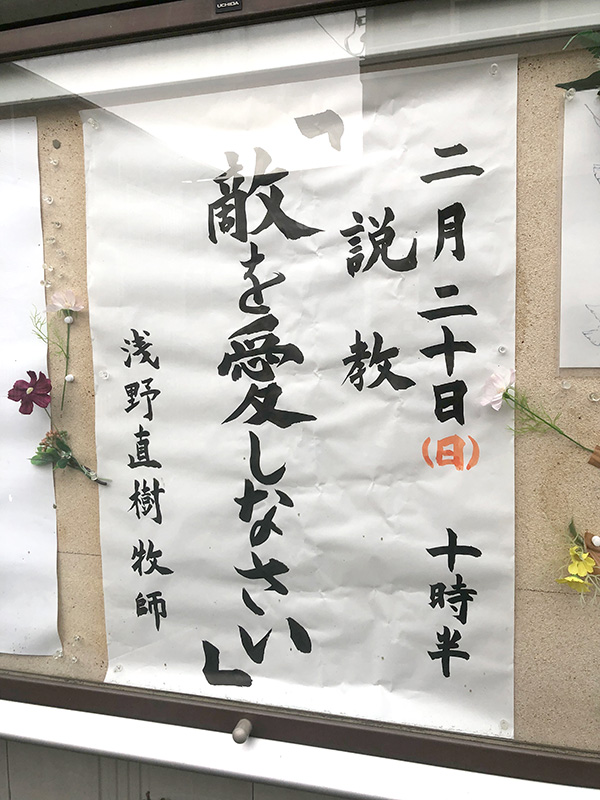 UCHIDA
二月二十日(日) 十時半
説教
「敵を愛しなさい」
浅野直樹牧師